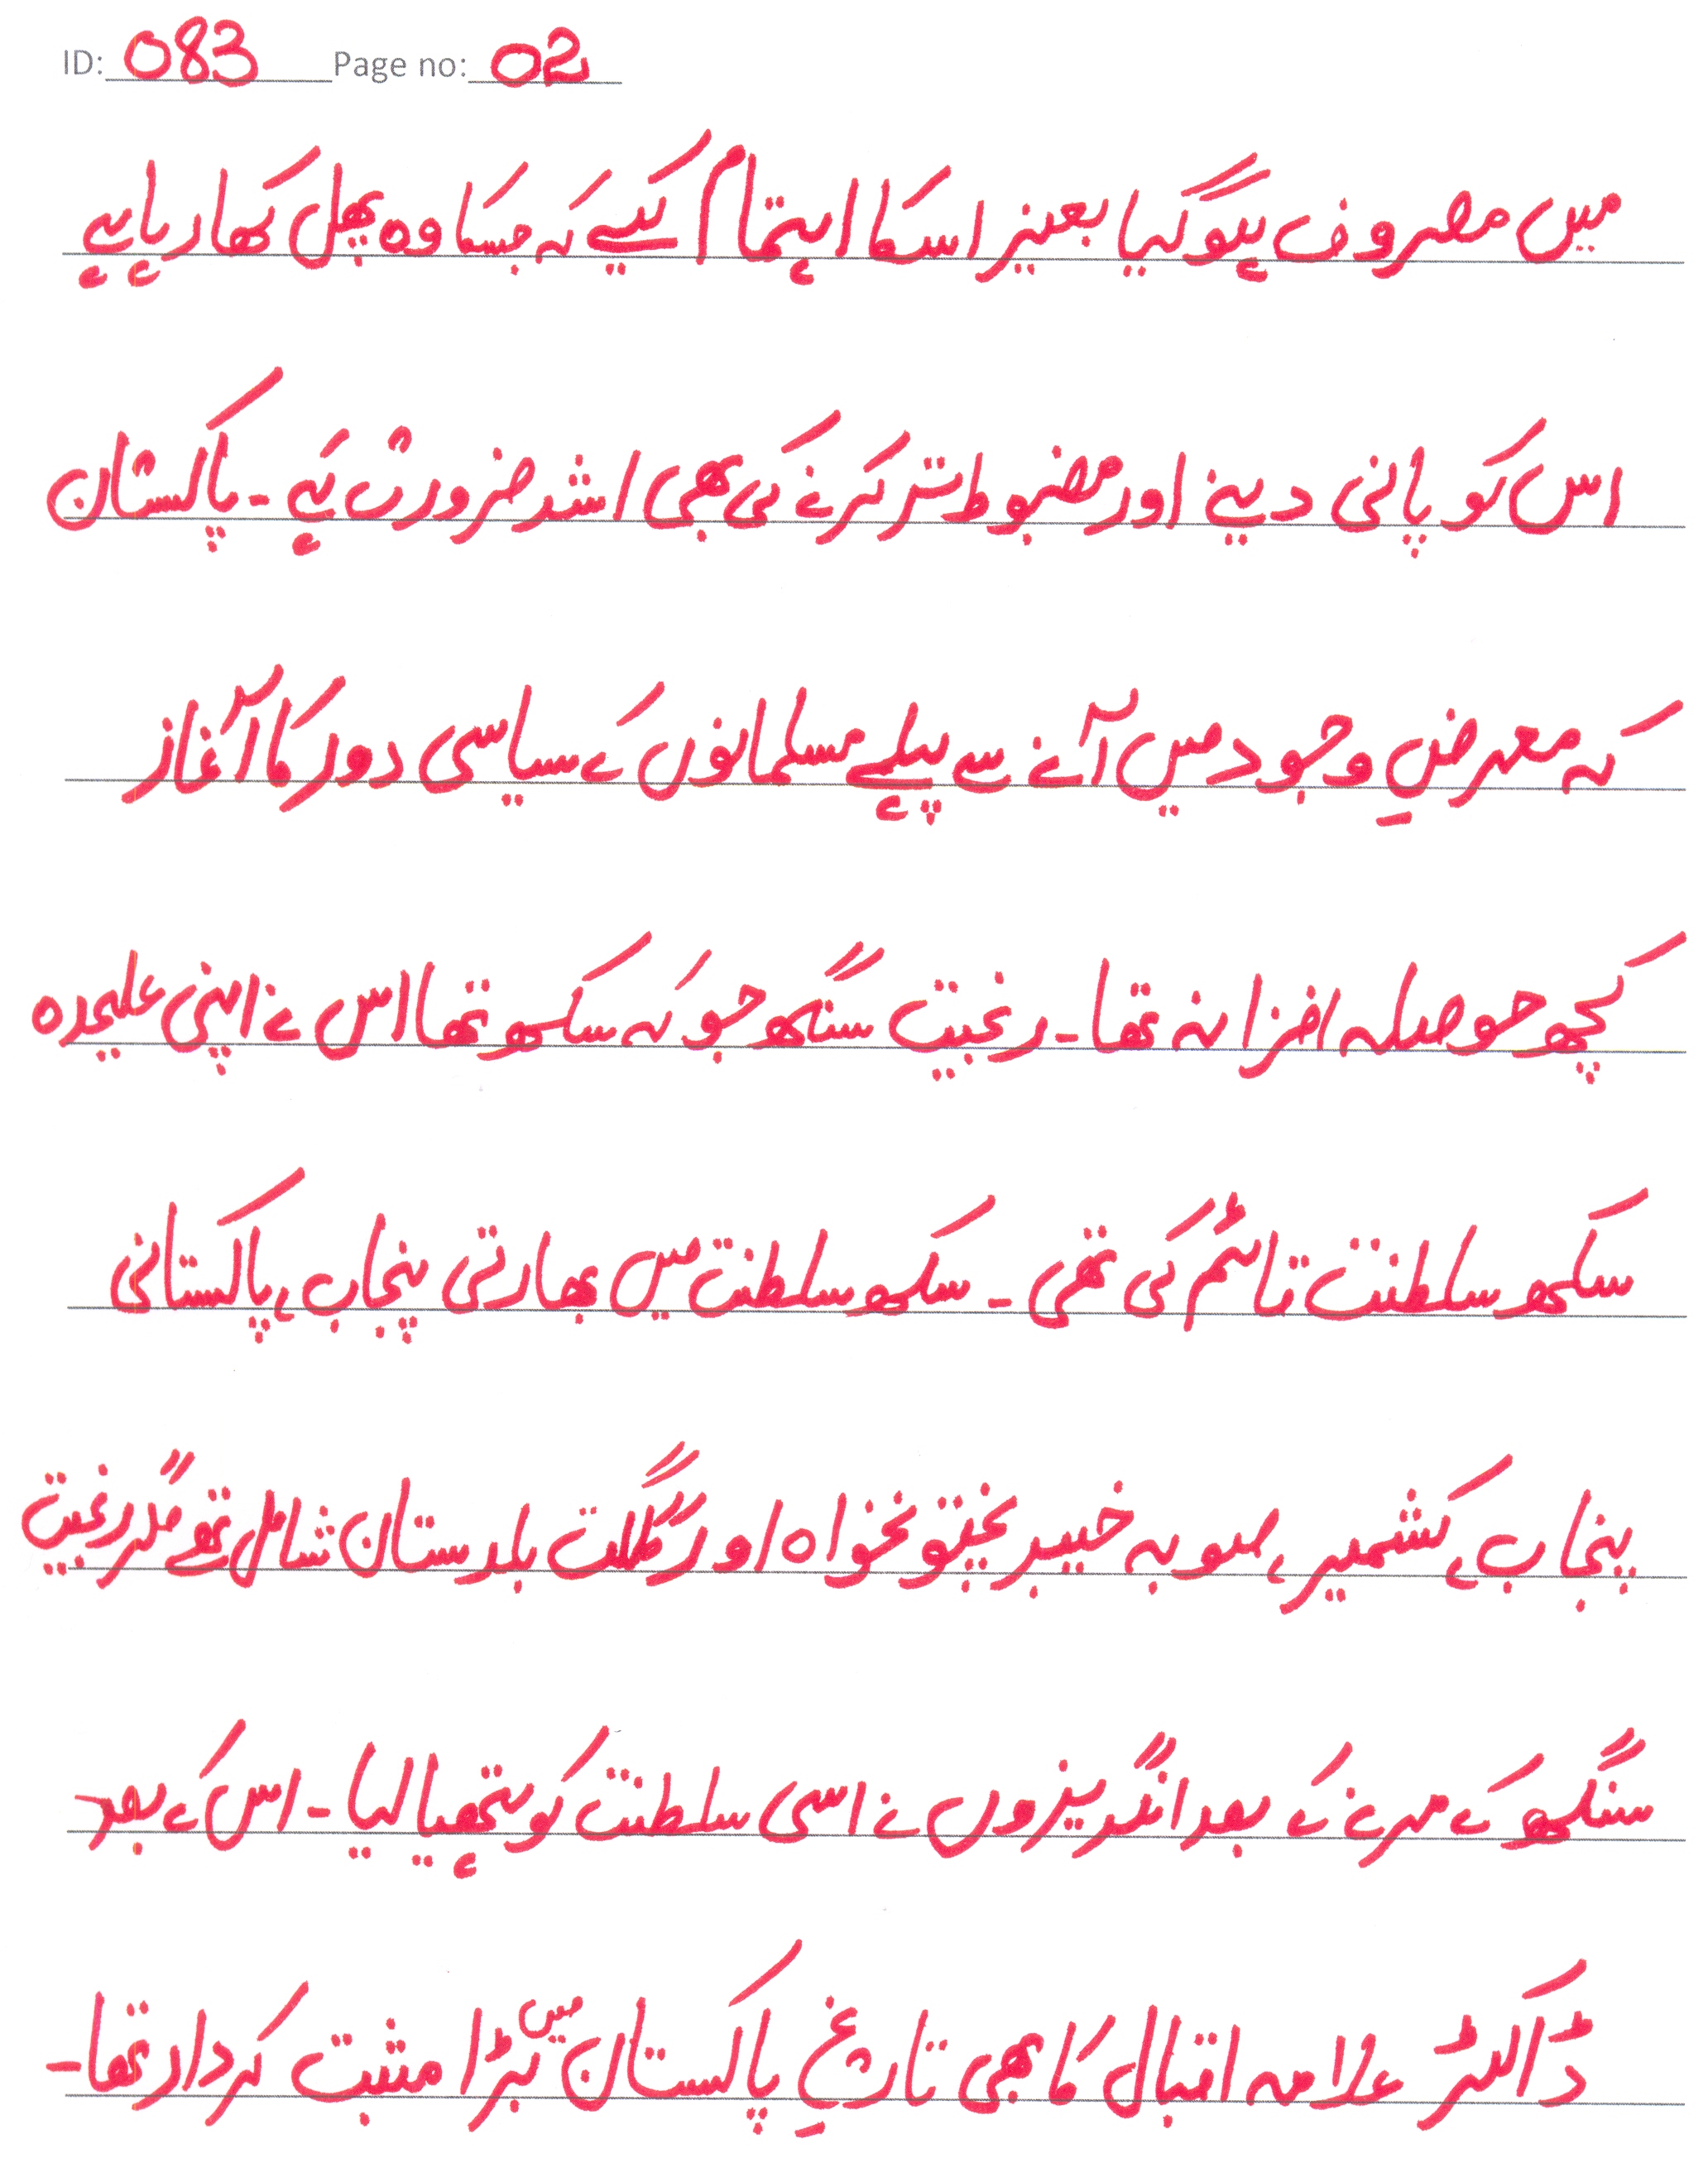 ID: 083 Page no: 02
میں مصروف ہوگیا بغیر اسکا اہتمام کیے کہ جسکا وہ پھل کھا رہا ہے
اس کو پانی دینے اور مضبوط تر کرنے کی بھی اشد ضرورت ہے ۔ پاکستان
کہ معرضِ وجود میں آنے سے پہلے مسلمانوں کے سیاسی دور کا آغاز
کچھ حوصلہ افزا نہ تھا ۔ رنجیت سنگھ جو کہ سکھ تھا اس نے اپنی علیحدہ
سکھ سلطنت قائم کی تھی ۔ سکھ سلطنت میں بھارتی پنجاب، پاکستانی
پنجاب، کشمیر، صوبہ خیبر پختونخواہ اور گلگت بلدستان شامل تھے مگر رنجیت
سنگھ کے مرنے کے بعد انگریزوں نے اسی سلطنت کو ہتھیا لیا ۔ اس کے بعد
ڈاکٹر علامہ اقبال کا بھی تاریخِ پاکستان میں بڑا مثبت کردار تھا ۔